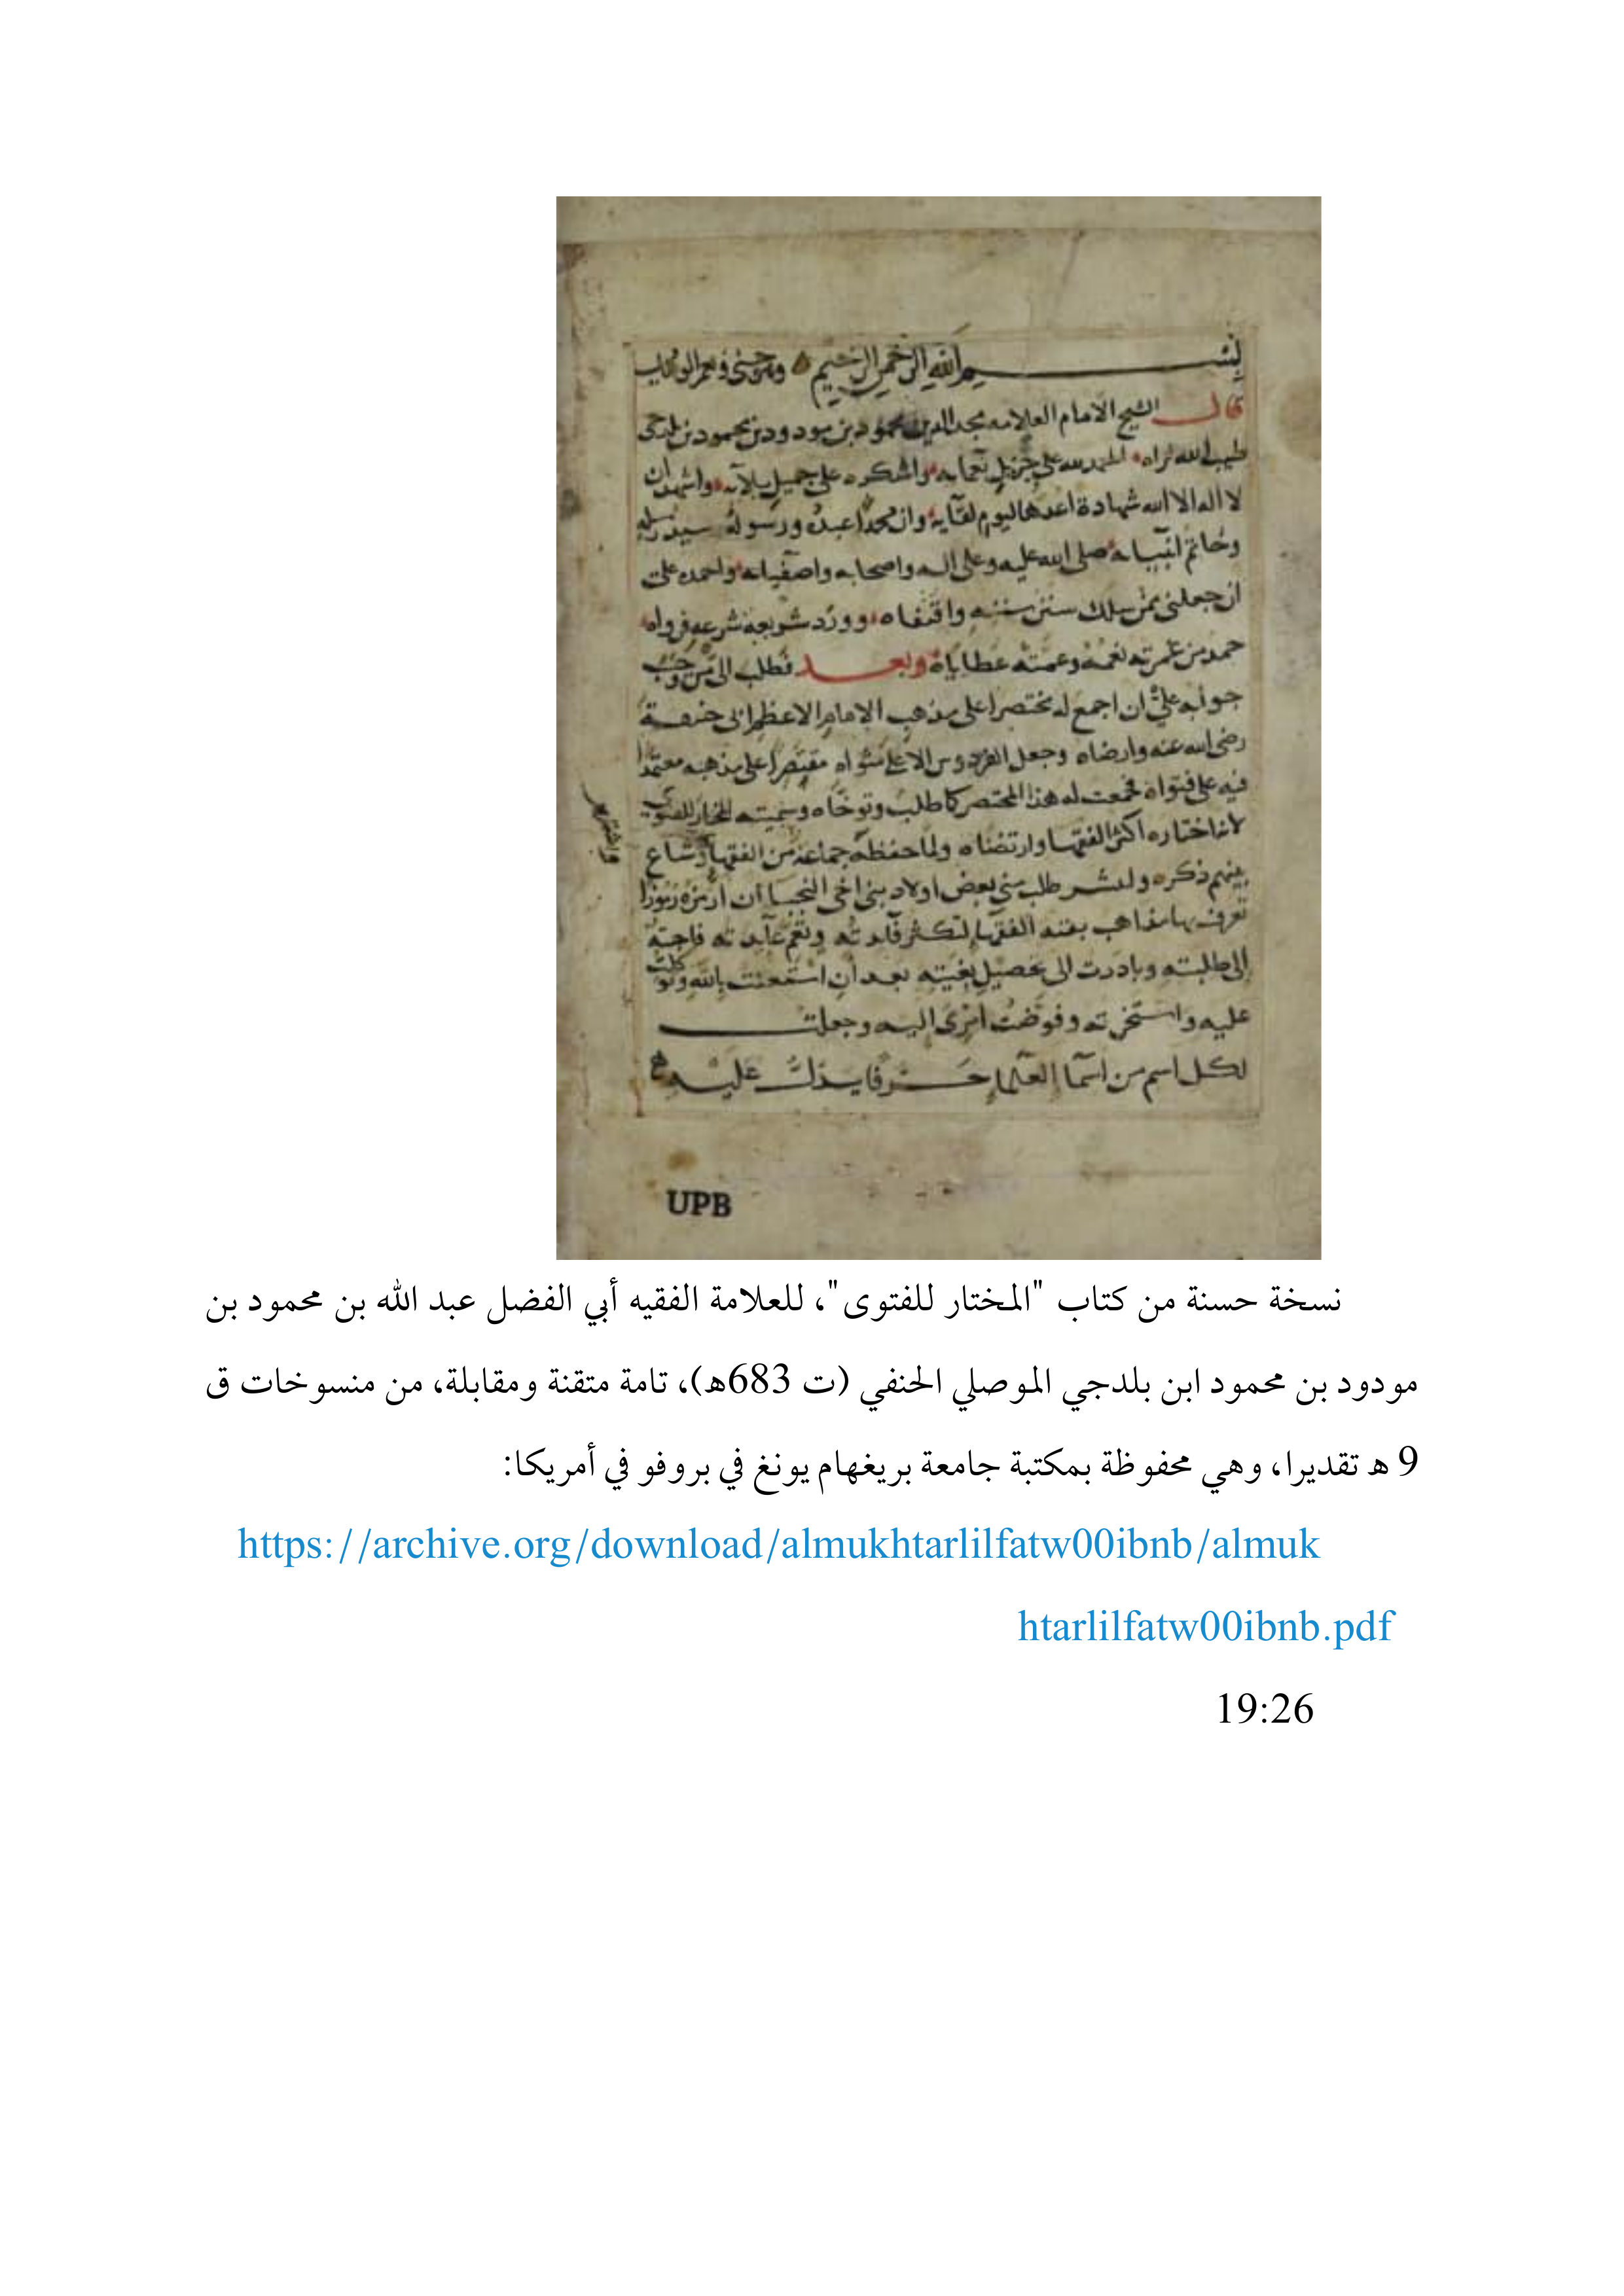 بسم الله الرحمن الرحيم وهو حسبي ونعم الوكيل
قال الشيخ الامام العلامه مجد الدين محمود بن مودود بن محمود بن بلدجى
طيب الله ثراه الحمد لله على جزيل نعمايه واشكره على جميل بلآيه واشهد ان
لا اله الا الله شهادة اعدها ليوم لقآيه وان محمدا عبده ورسوله سيد رسله
وخاتم انبيايه صلى الله عليه وعلى اله واصحابه واصفيايه واحمده على
ان جعلنى ممن سلك سنن سننه واقتفاه وورد شريعة شرعه فرواه
حمد من غمرته نعمه وعمته عطاياه وبعد فطلب الى من وجب
جوابه علي ان اجمع له مختصرا على مذهب الامام الاعظم ابى حنيفة
رضى الله عنه وارضاه وجعل الفردوس الاعلى مثواه مقتصرا على مذهبه معتمدا
فيه على فتواه فجمعت له هذا المختصر كما طلب وتوخاه وسميته المختار للفتوى
لانه اختاره اكثر الفقها وارتضاه ولما حفظه جماعة من الفقها وشاع
بينهم ذكره وانتشر طلب منى بعض اولاد بنى اخى النجبا ان ارمزه رموزا
تعرف بها مذاهب بقية الفقها لتكثر فآيدته وتعم عآيدته فاجبته
الى طلبته وبادرت الى تحصيل بغيته بعد ان استعنت بالله وتوكلت
عليه واستخرته وفوضت امرى اليه وجعلت
لكل اسم من اسما العلما حرفا يدل عليه
UPB
نسخة حسنة من كتاب "المختار للفتوى"، للعلامة الفقيه أبي الفضل عبد الله بن محمود بن
مودود بن محمود ابن بلدجي الموصلي الحنفي (ت 683هـ)، تامة متقنة ومقابلة، من منسوخات ق
9 هـ تقديرا، وهي محفوظة بمكتبة جامعة بريغهام يونغ في بروفو في أمريكا:
https://archive.org/download/almukhtarlilfatw00ibnb/almuk
htarlilfatw00ibnb.pdf
19:26